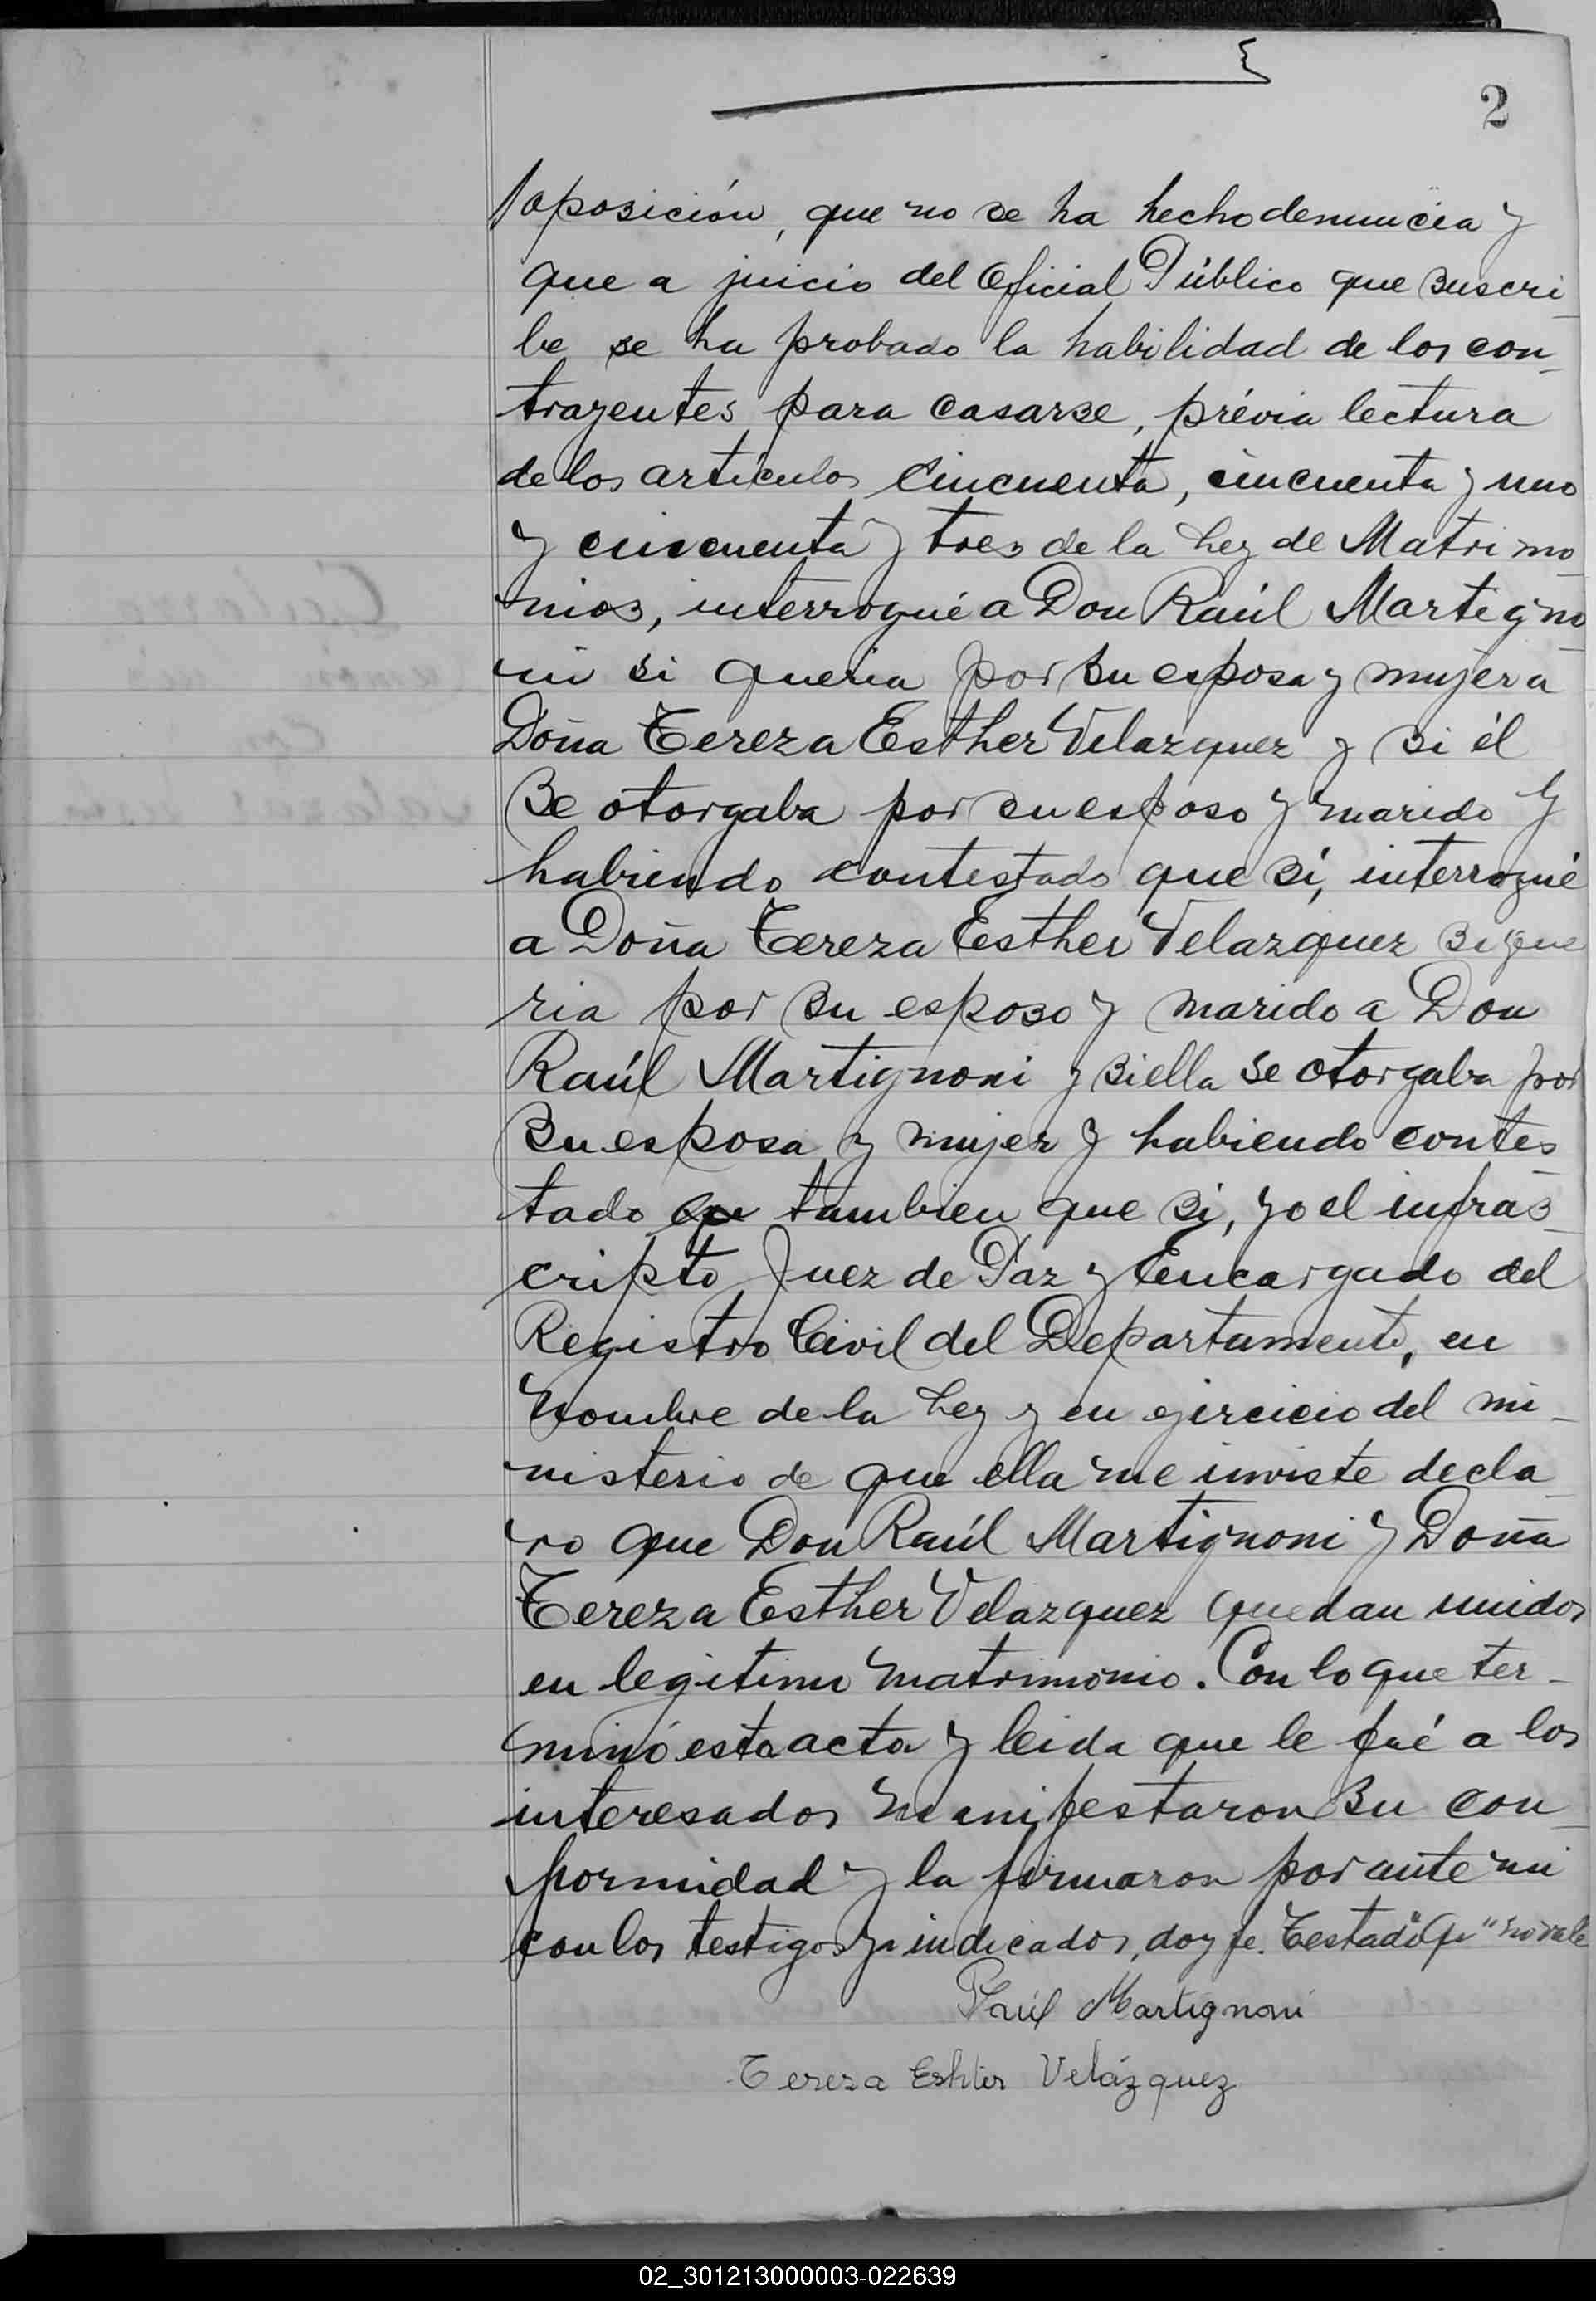 2
oposición, que no se ha hecho denuncia y
que a juicio del Oficial Público que suscri_
be se ha probado la habilidad de los con_
trayentes para casarse, prévia lectura
de los artículos cincuenta, cincuenta y uno
y cincuenta y tres de la Ley de Matrimo_
nios, interrogué a Don Raúl Martigno_
ni si queria por su esposa y mujer a
Doña Tereza Esther Velazquez y si él
se otorgaba por su esposo y marido y
habiendo contestado que sí, interrogué
a Doña Tereza Esther Velazquez si que
ria por su esposo y marido a Don
Raúl Martignoni y si ella se otorgaba por
su esposa y mujer y habiendo contes_
tado qu tambien que si, yo el infras_
cripto Juez de Paz y Encargado del
Registro Civil del Departamento, en
nombre de la Ley y en ejercicio del mi_
nisterio de que ella me inviste decla_
ro que Don Raúl Martignoni y Doña
Tereza Esther Velazquez quedan unidos
en legitimo matrimonio. Con lo que ter_
minó esta acta y leida que le fué a los
interesados manifestaron su con_
formidad y la firmaron por ante mi
con los testigos ya indicados, doy fe. Testado "qu" no vale
Raúl Martignoni
Tereza Esther Velázquez
02_301213000003-022639